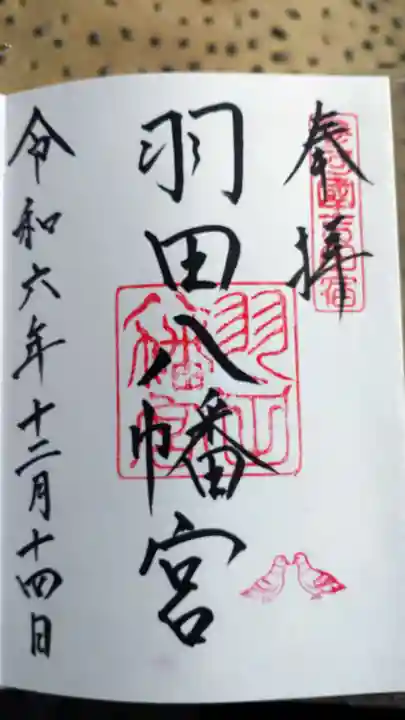 奉拝
羽田八幡宮
令和六年十二月十四日